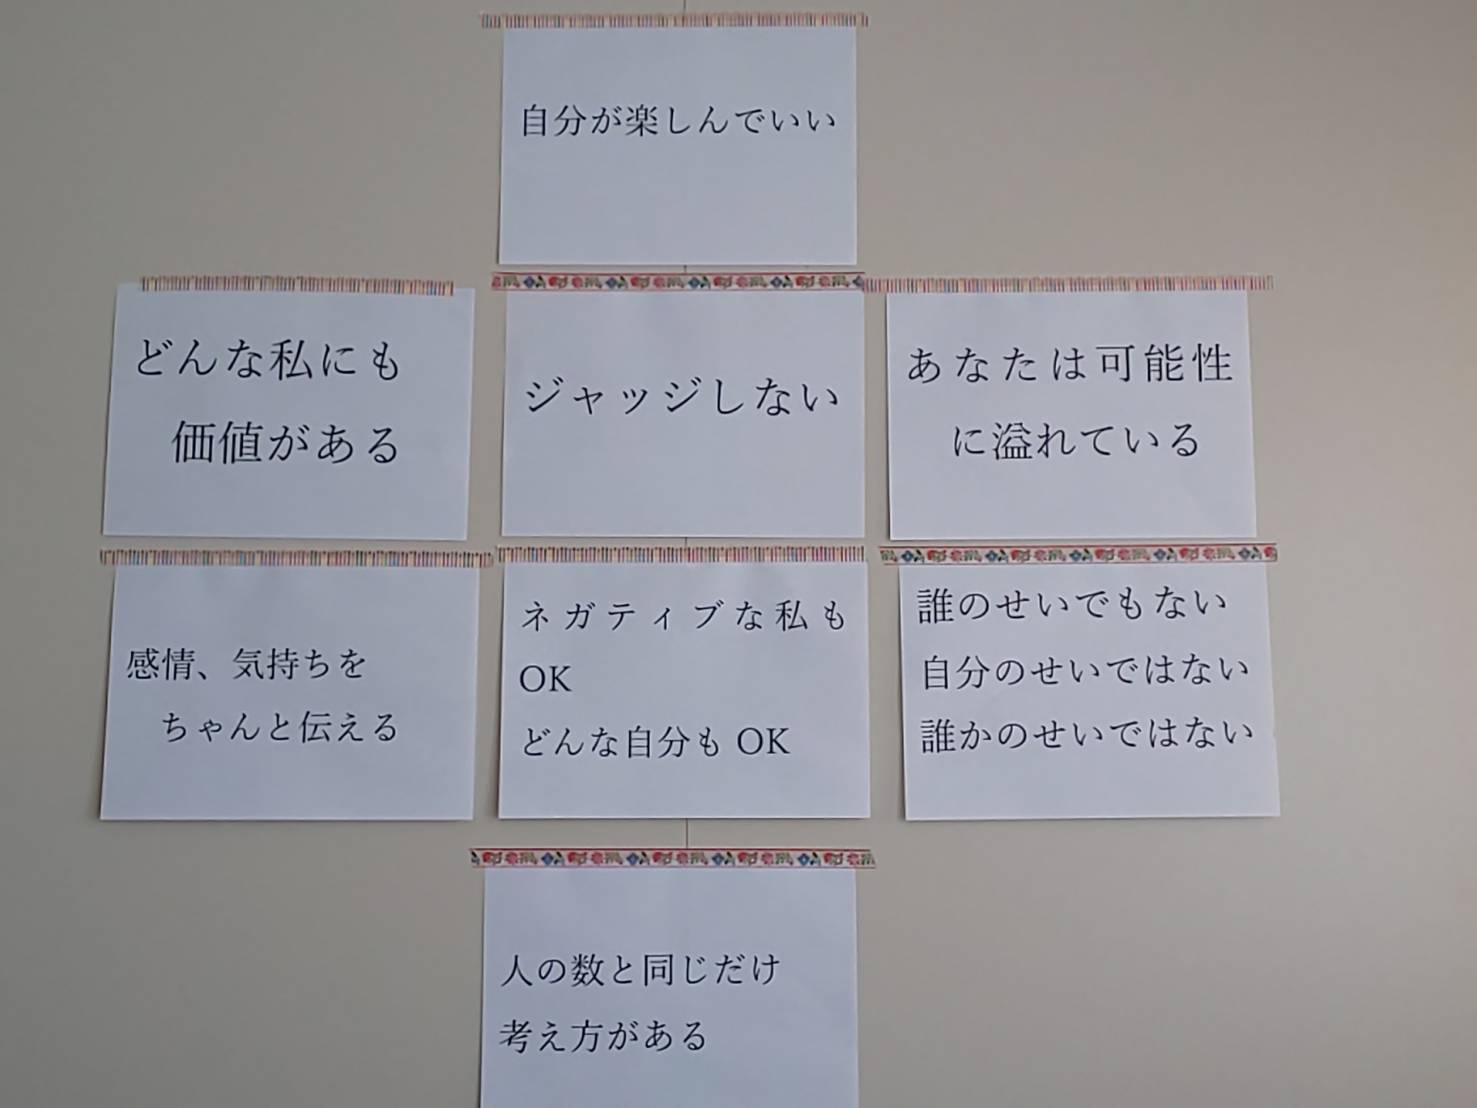 自分が楽しんでいい
どんな私にも
価値がある
ジャッジしない
あなたは可能性
に溢れている
感情、気持ちを
ちゃんと伝える
ネガティブな私も
OK
どんな自分も OK
誰のせいでもない
自分のせいではない
誰かのせいではない
人の数と同じだけ
考え方がある